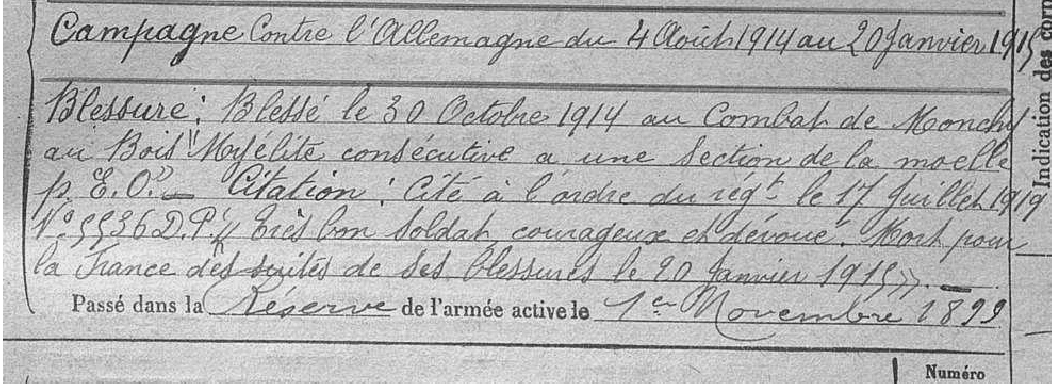 Campagne Contre l'Allemagne du 4 Août 1914 au 20 Janvier 1915
Blessure : Blessé le 30 Octobre 1914 au Combat de Monchy
au Bois "Myélite consécutive a une Section de la moelle
p. E. O." — Citation : Cité à l'ordre du rég.t le 17 Juillet 1919
N° 5536 D.P. "très bon soldat courageux et dévoué. Mort pour
la France des suites de ses blessures le 20 Janvier 1915». —
Passé dans la Réserve de l'armée active le 1er Novembre 1899
Numéro
Indication des corp